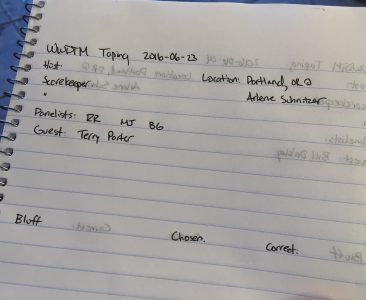 WWDTM Taping 2016-06-23
Host: Location: Portland, OR
Scorekeeper Arlene Schnitzer
Panelists: RR MJ BG
Guest: Terry Porter
Bluff
Chosen:
Correct: